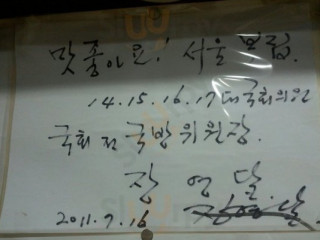 맛 좋아요! 서울 보림.
14.15.16.17대 국회의원
국회 전 국방위원장.
장 영 달
2011.7.16